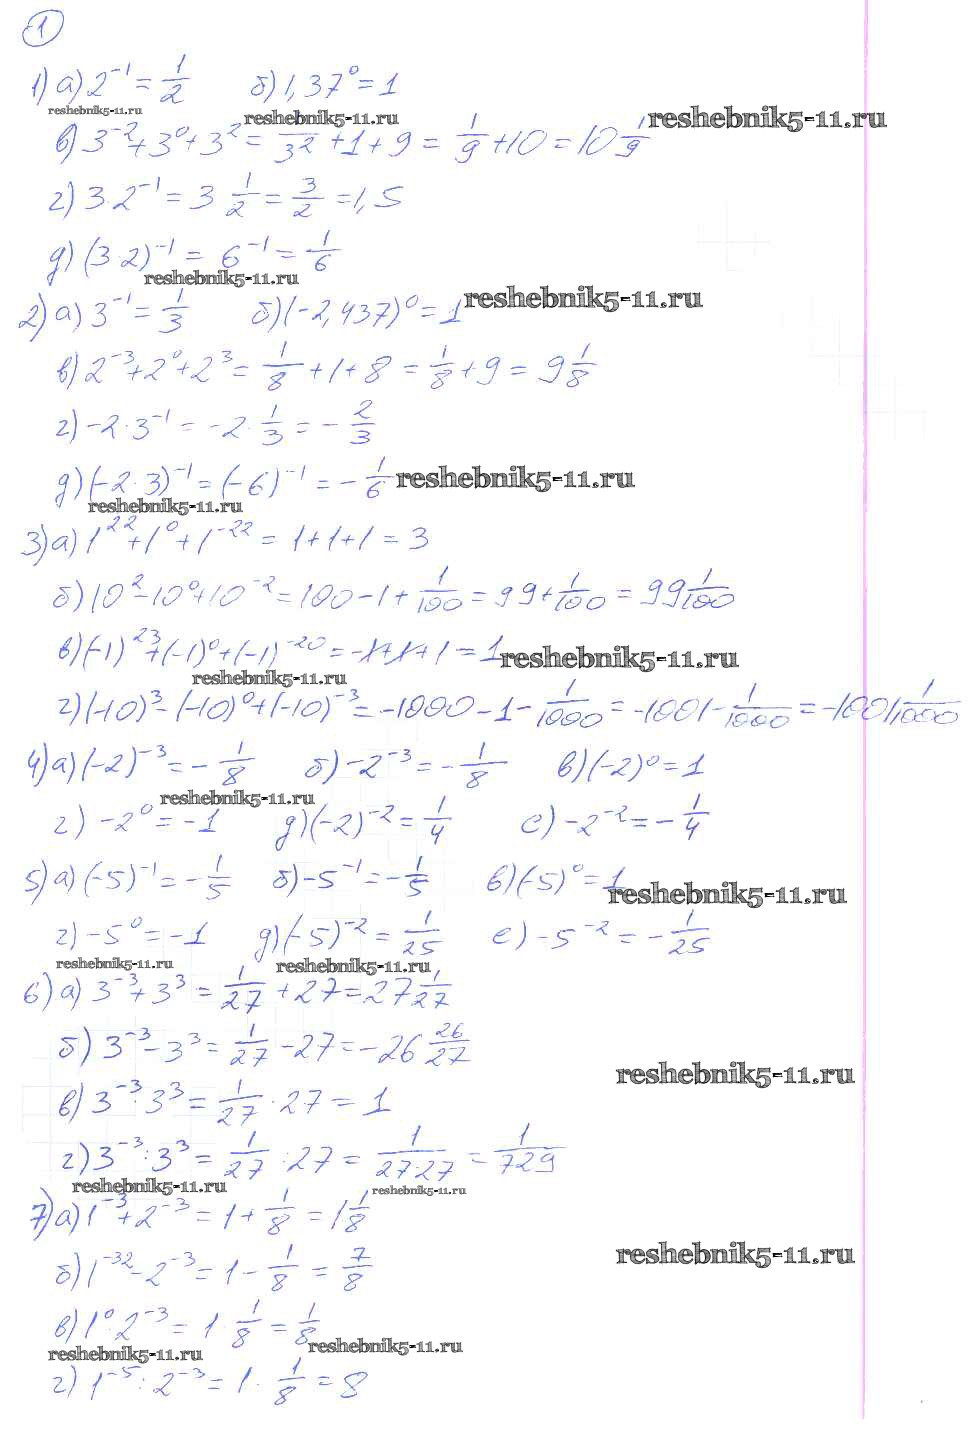 1
1) а) 2⁻¹ = 1/2 б) 1,37⁰ = 1
reshebnik5-11.ru reshebnik5-11.ru reshebnik5-11.ru
в) 3⁻² + 3⁰ + 3² = 1/3² + 1 + 9 = 1/9 + 10 = 10 1/9
г) 3·2⁻¹ = 3 · 1/2 = 3/2 = 1,5
д) (3·2)⁻¹ = 6⁻¹ = 1/6
reshebnik5-11.ru reshebnik5-11.ru
2) а) 3⁻¹ = 1/3 б) (-2,437)⁰ = 1
в) 2⁻³ + 2⁰ + 2³ = 1/8 + 1 + 8 = 1/8 + 9 = 9 1/8
г) -2·3⁻¹ = -2 · 1/3 = - 2/3
д) (-2·3)⁻¹ = (-6)⁻¹ = - 1/6 reshebnik5-11.ru
reshebnik5-11.ru
3) а) 1²² + 1⁰ + 1⁻²² = 1+1+1 = 3
б) 10² - 10⁰ + 10⁻² = 100 - 1 + 1/100 = 99 + 1/100 = 99 1/100
в) (-1)²³ + (-1)⁰ + (-1)⁻²⁰ = -1+1+1 = 1 reshebnik5-11.ru
reshebnik5-11.ru
г) (-10)³ - (-10)⁰ + (-10)⁻³ = -1000 - 1 - 1/1000 = -1001 - 1/1000 = -1001 1/1000
4) а) (-2)⁻³ = - 1/8 б) -2⁻³ = - 1/8 в) (-2)⁰ = 1
reshebnik5-11.ru
г) -2⁰ = -1 д) (-2)⁻² = 1/4 е) -2⁻² = - 1/4
5) а) (-5)⁻¹ = - 1/5 б) -5⁻¹ = - 1/5 в) (-5)⁰ = 1
reshebnik5-11.ru
г) -5⁰ = -1 д) (-5)⁻² = 1/25 е) -5⁻² = - 1/25
reshebnik5-11.ru reshebnik5-11.ru
6) а) 3⁻³ + 3³ = 1/27 + 27 = 27 1/27
б) 3⁻³ - 3³ = 1/27 - 27 = -26 26/27
reshebnik5-11.ru
в) 3⁻³ · 3³ = 1/27 · 27 = 1
г) 3⁻³ : 3³ = 1/27 : 27 = 1/27·27 = 1/729
reshebnik5-11.ru reshebnik5-11.ru
7) а) 1⁻³ + 2⁻³ = 1 + 1/8 = 1 1/8
reshebnik5-11.ru
б) 1⁻³² - 2⁻³ = 1 - 1/8 = 7/8
в) 1⁰ · 2⁻³ = 1 · 1/8 = 1/8
reshebnik5-11.ru reshebnik5-11.ru
г) 1⁻⁵ : 2⁻³ = 1 · 1/8 = 8